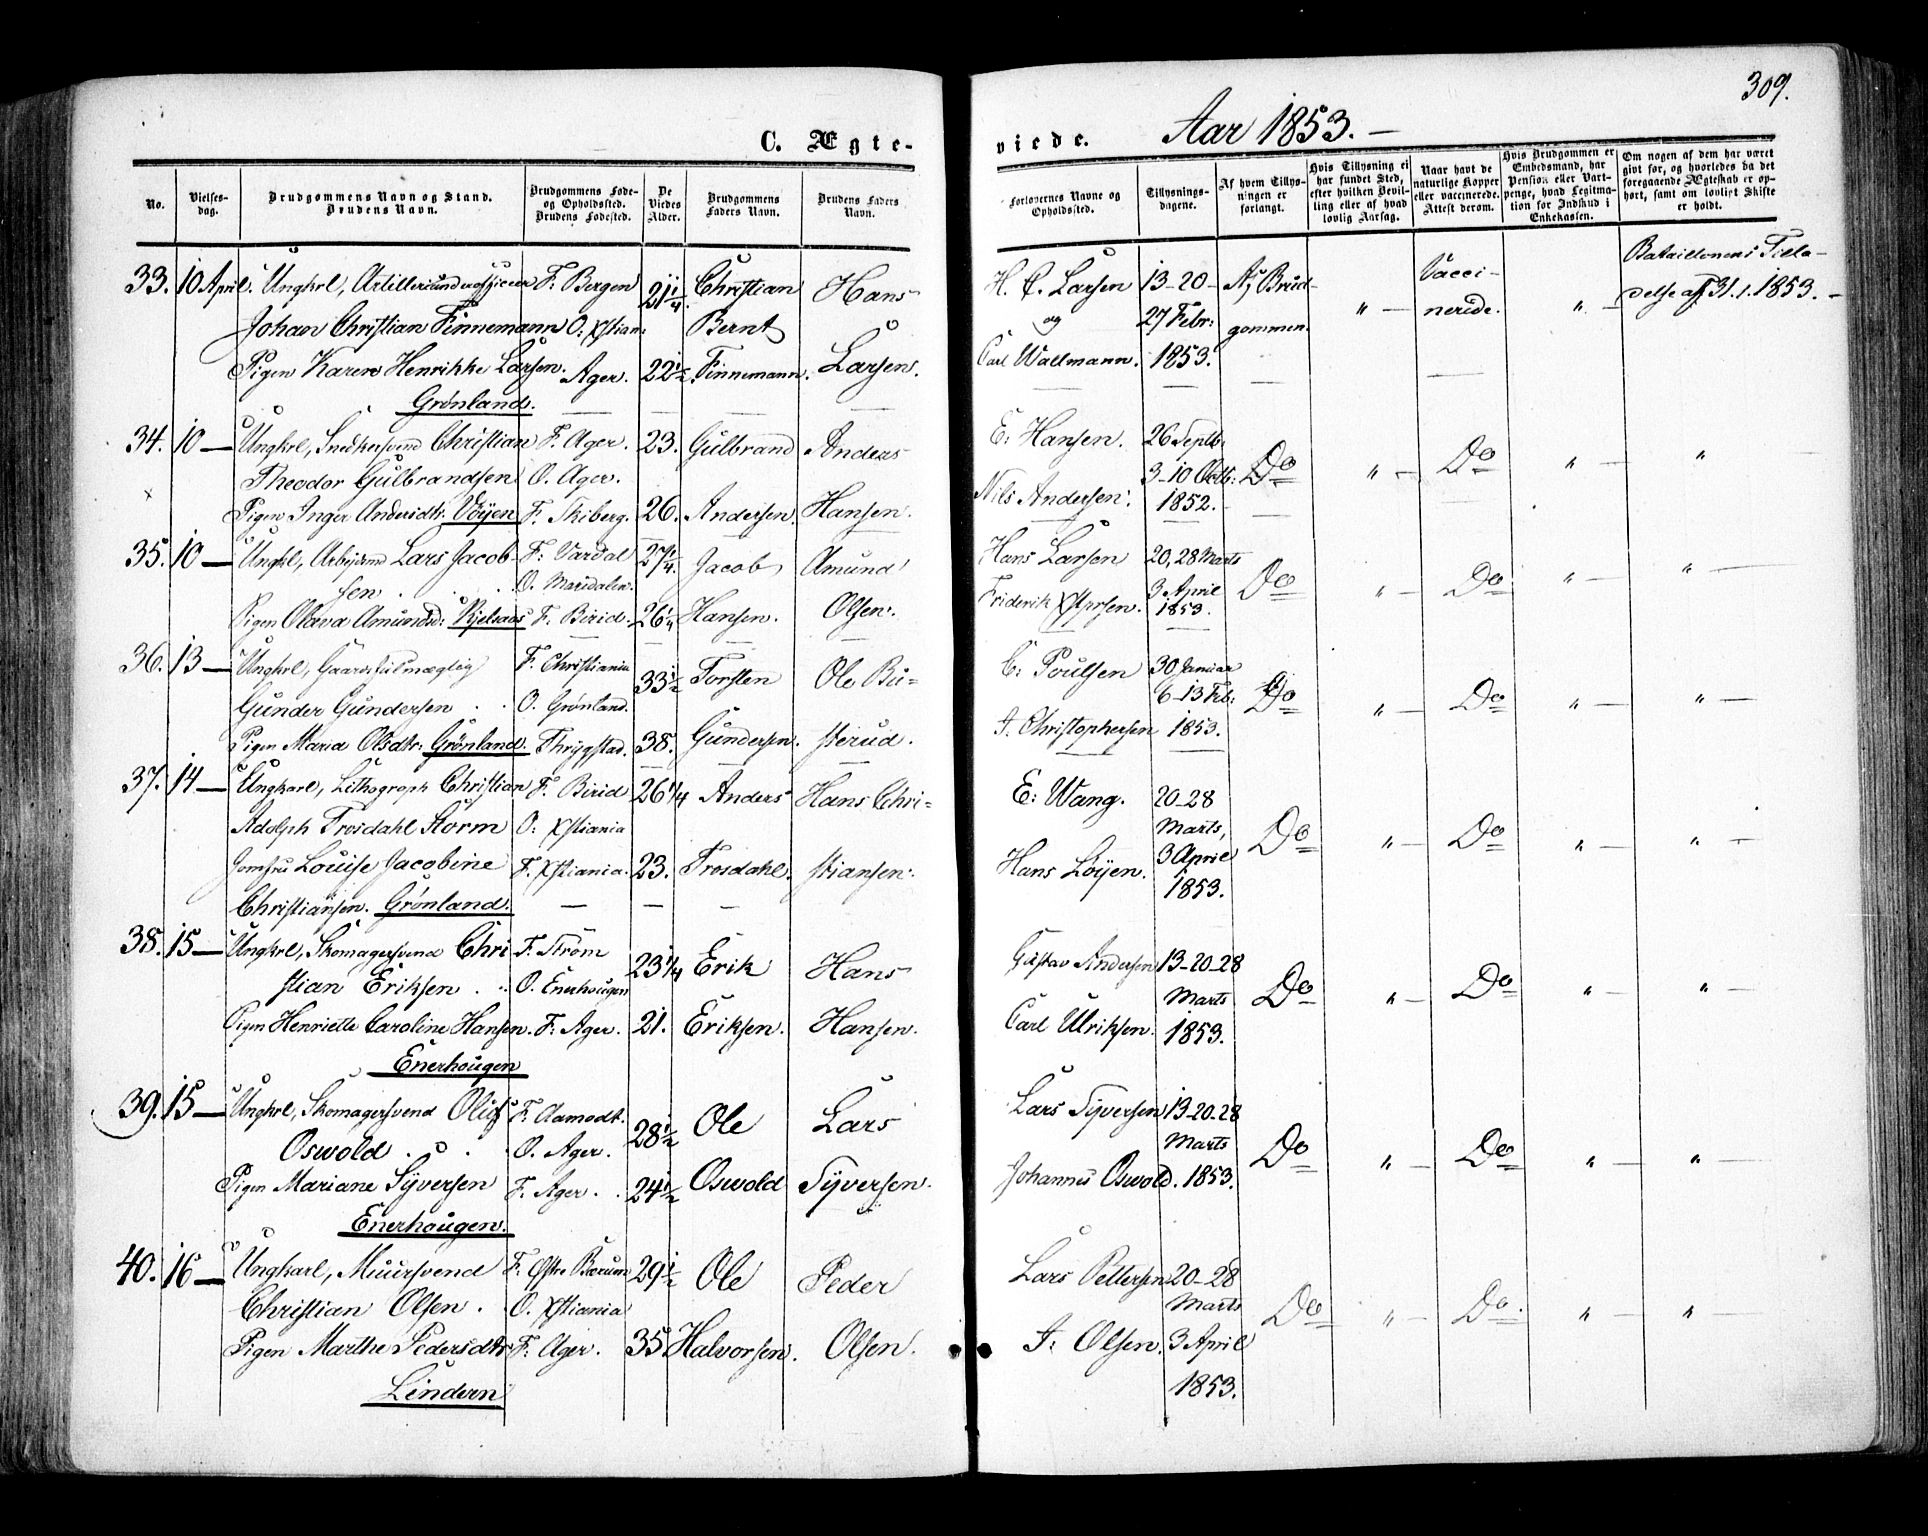 309.
C. Ægte-
viede.
Aar 1853.
No.
Vielses-
dag.
Brudgommens Navn og Stand.
Brudens Navn.
Brudgommens Føde-
og Opholdssted.
Brudens Fødested.
De
Viedes
Alder.
Brudgommens
Faders Navn.
Brudens Faders
Navn.
Forlovernes Navne og
Opholdssted.
Tillysnings-
dagene.
Af hvem Tillys-
ningen er
forlangt.
Hvis Tillysning ei
har fundet Sted,
efter hvilken Bevil-
ling eller af hvad
lovlig Aarsag.
Naar havt de
naturlige Kopper
eller vaccinerede.
Attest derom.
Hvis Brudgommen er
Embedsmand, har
Pension eller Vart-
penge, hvad Legitma-
tion for Indskud i
Enkekassen.
Om nogen af dem har været
givt før, og hvorledes da det
foregaaende Ægteskab er op-
hørt, samt om lovligt Skifte
er holdt.
33. 10 April. Ungkrl, Artilleriunderofficeer F. Bergen 21 1/4. Christian Hans H. C. Larsen 13-20- Af Brud- " — Vacci- " — Bataillonens Tilla-
Johan Christian Finnemann O: Xstian: Bernt og 27 Febr: gommen. nerede. delse af 31.1.1853. -
Pigen Karen Henrikke Larsen. Ager. 22 1/2. Finnemann. Larsen. Carl Wallmann. 1853.
Grønland.
34. 10 — Ungkrl, Snedkersvend Christian F. Ager. 23. Gulbrand Anders E: Hansen. 26 Septb: Do " — Do " — "
Theodor Gulbrandsen O. Ager. 3-10 Octb:
Pigen Inger Andersdtr. Vøyen F. Skiberg. 26. Andersen. Hansen. Nils Andersen. 1852.
35. 10 — Ungkl, Arbeidsmd Lars Jacob- F: Vardal 27 1/4. Jacob Amund Hans Larsen 20, 28 Marts Do " — Do " — " —
sen. O. Maridalen. 3 April
Pigen Olava Amundsd: Kjelsaas F. Birid. 26 1/4 Hansen. Olsen. Friderik Xstphsen. 1853.
36. 13 — Ungkrl, Gaardsfuldmægtig F. Christiania 33 1/2 Torsten Ole Bu- C: Poulsen 30 Januar Do " — Do " — " —
Gunder Gundersen O. Grønland. 6-13 Feb:
Pigen Maria Olsdtr: Grønland. Thrygstad. 38. Gundersen. sterud. A. Christophersen 1853.
37. 14 — Ungkarl, Lithograph Christian F. Birid 26 1/4 Anders Hans Chri- E: Wang. 20-28 Do " — Do " — " —
Adolph Frosdahl Storm O: Xstiania Marts,
Jomfru Louise Jacobine F. Xstiania. 23. Frosdahl. stiansen. Hans Løyen. 3 April
Christiansen. Grønland. 1853.
38. 15 — Ungkrl, Skomagersvend Chri- F. Strøm 23 1/4 Erik Hans Gustav Andersen 13-20-28 Do " — Do " — " —
stian Eriksen. O. Enerhougen Marts
Pigen Henriette Caroline Hansen. F: Ager. 21. Eriksen. Hansen. Carl Ulriksen. 1853.
Enerhougen
39. 15 — Ungkrl, Skomagersvend Oluf F. Aamodt. 28 1/2 Ole Lars Lars Syversen 13-20-28 Do " — Do " — " —
Oswold O. Ager. Marts
Pigen Mariane Syversen F. Ager. 24 1/2 Oswold Syversen. Johannes Oswold. 1853.
Enerhougen.
40. 16 — Ungkarl, Muursvend F. Østre Bærum 29 1/2 Ole Peder Lars Pettersen 20-28 Do " — Do. " — " —
Christian Olsen. O. Xstiania Marts
Pigen Marthe Pedersdtr F. Ager. 35 Halvorsen. Olsen. A: Olsen. 3 April
Lindern 1853.